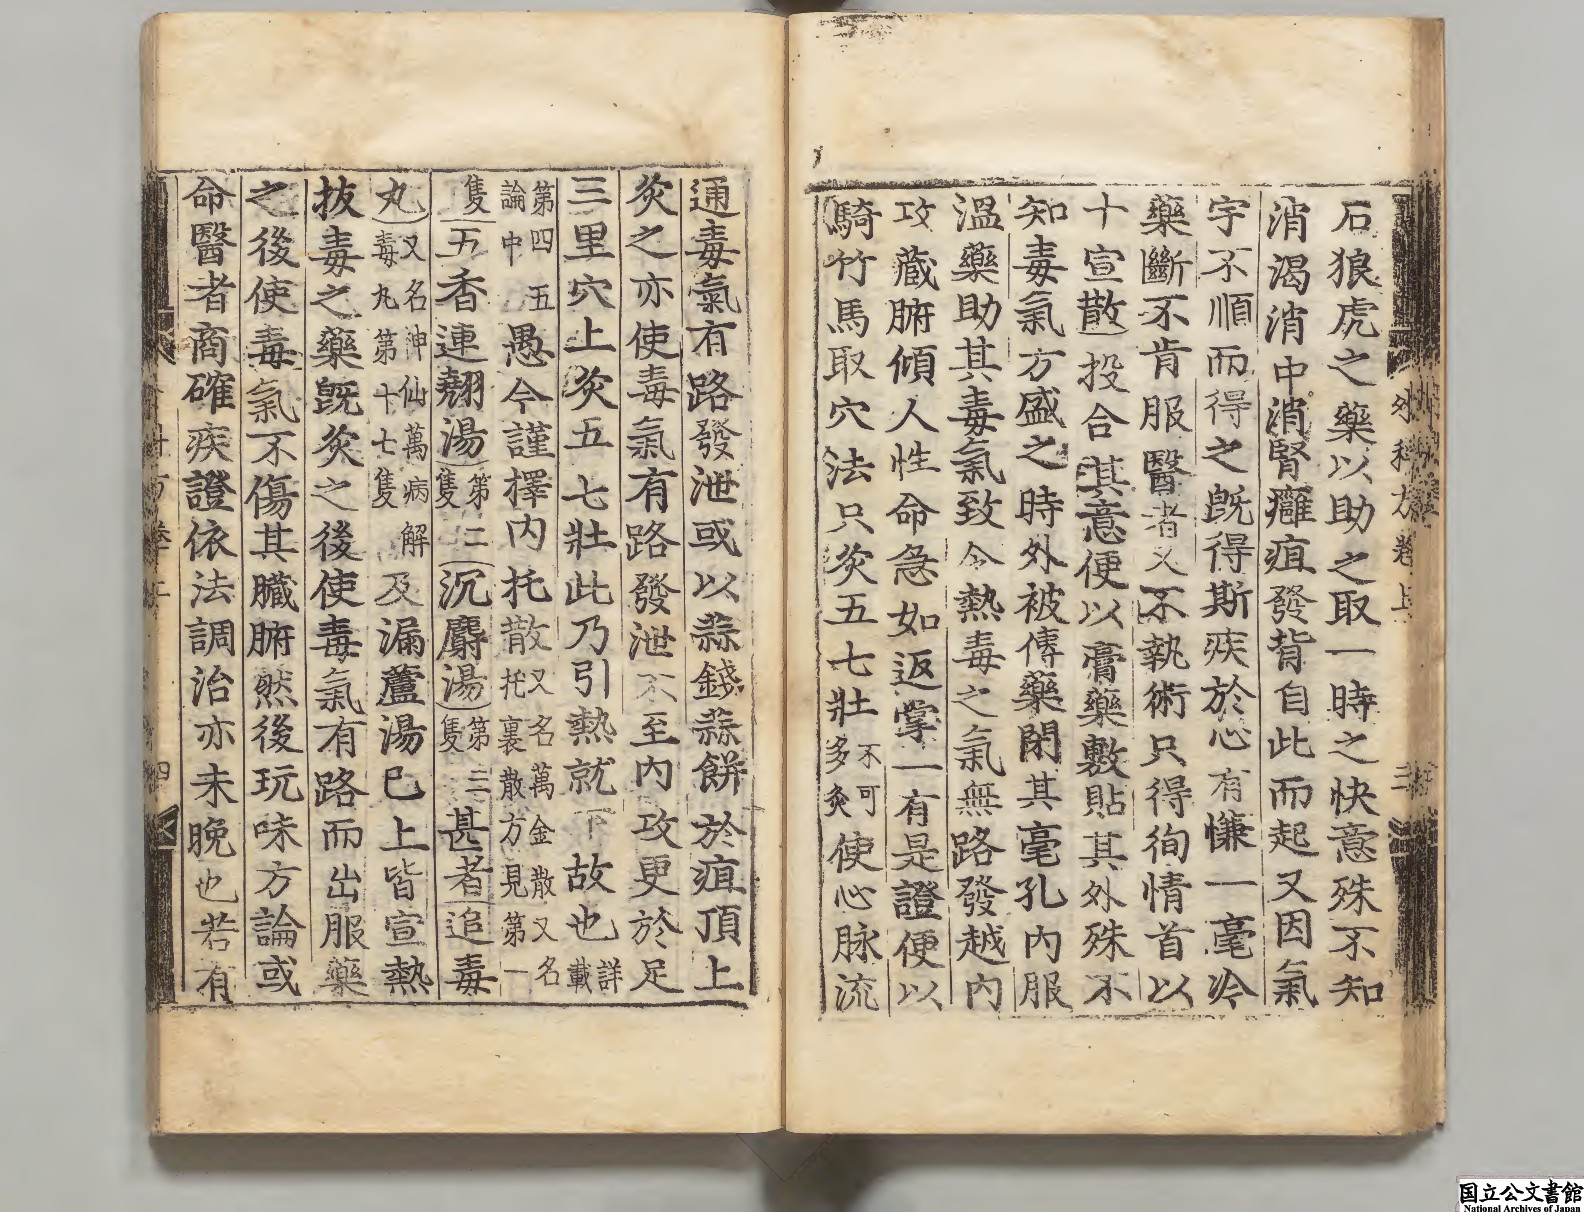 石狼虎之藥以助之取一時之快意殊不知
消渴消中消腎癰疽發背自此而起又因氣
宇不順而得之旣得斯疾於心有慊一毫冷
藥斷不肯服醫者又不執術只得徇情首以
十宣散投合其意便以膏藥敷貼其外殊不
知毒氣方盛之時外被傅藥閉其毫孔內服
溫藥助其毒氣致令熱毒之氣無路發越內
攻藏腑傾人性命急如返掌一有是證便以
騎竹馬取穴法只灸五七壯不可多灸使心脉流
外科方卷上
三
通毒氣有路發泄或以蒜錢蒜餅於疽頂上
灸之亦使毒氣有路發泄不至內攻更於足
三里穴上灸五七壯此乃引熱就下故也詳載
第四五論中愚今謹擇內托散又名萬金散又名托裏散方見第一
隻五香連翹湯第二隻沉麝湯第三隻甚者追毒
丸又名神仙萬病解毒丸第十七隻及漏蘆湯巳上皆宣熱
拔毒之藥旣灸之後使毒氣有路而出服藥
之後使毒氣不傷其臟腑然後玩味方論或
命醫者商確疾證依法調治亦未晚也若有
国立公文書館
National Archives of Japan